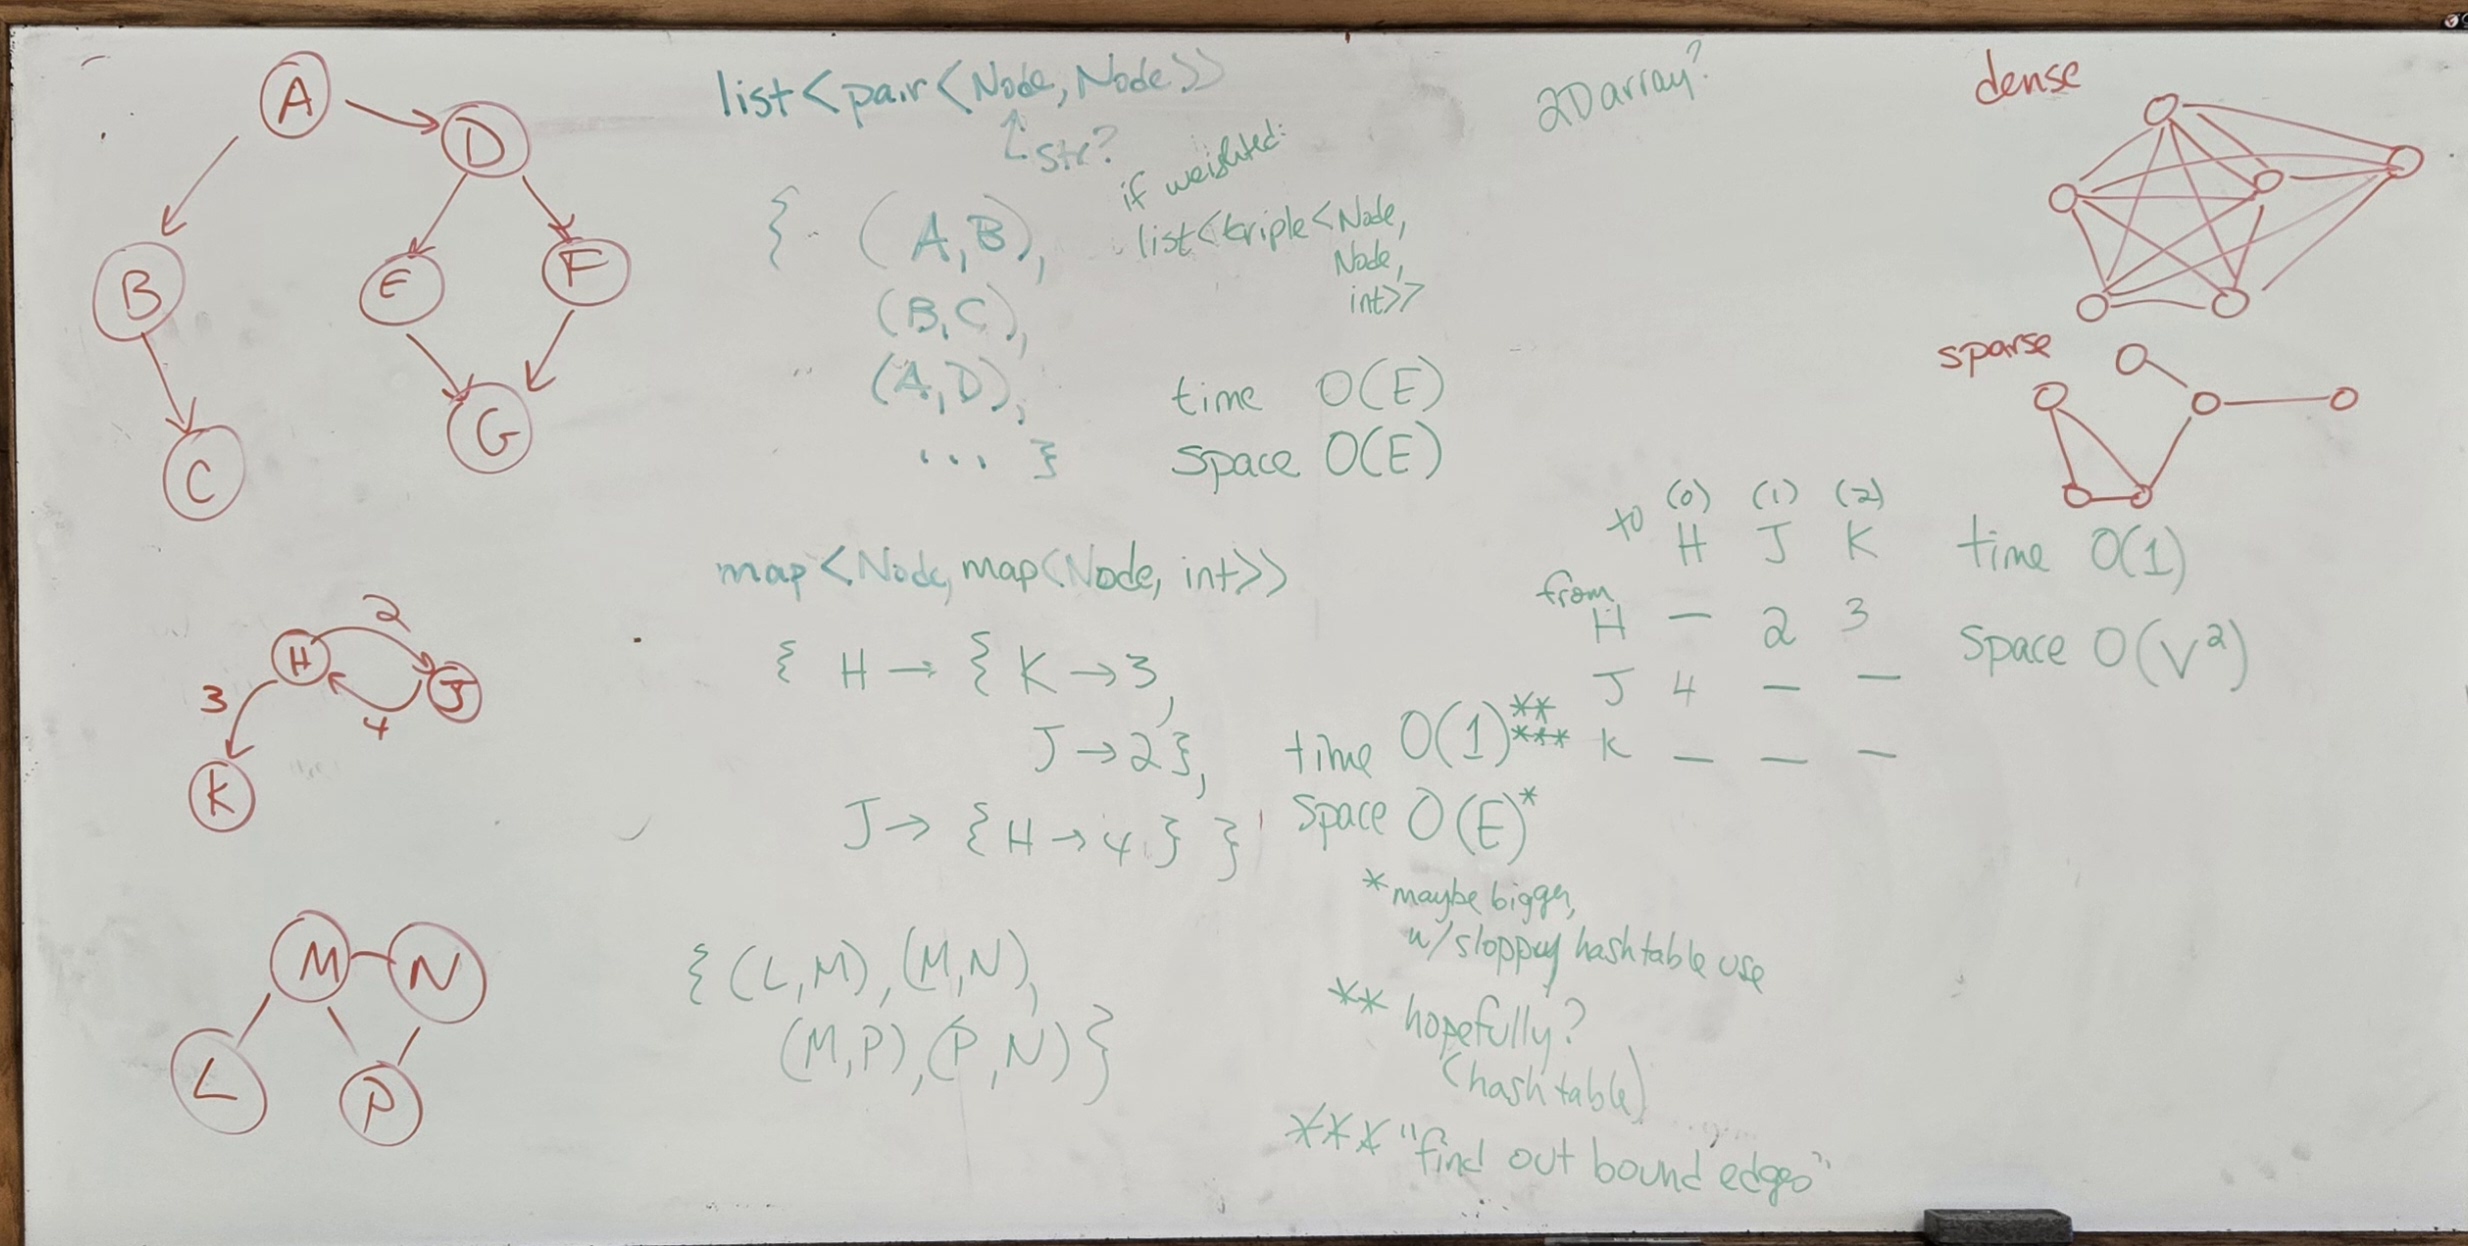 A
D
B
E
F
C
G
list<pair<Node, Node>>
str?
{ (A,B),
(B,C),
(A,D),
... }
if weighted:
list<triple<Node,
Node,
int>>
time O(E)
space O(E)
2D array?
dense
sparse
2
H
J
3
4
K
map<Node, map<Node, int>>
{ H → { K → 3,
J → 2 },
J → { H → 4 } }
time O(1)** ***
space O(E)*
*maybe bigger,
w/ sloppy hashtable use
** hopefully?
(hash table)
*** "find out bound edges"
(0) (1) (2)
to H J K
from
H — 2 3
J 4 — —
K — — —
time O(1)
space O(V²)
M N
L
P
{ (L,M), (M,N),
(M,P), (P,N) }